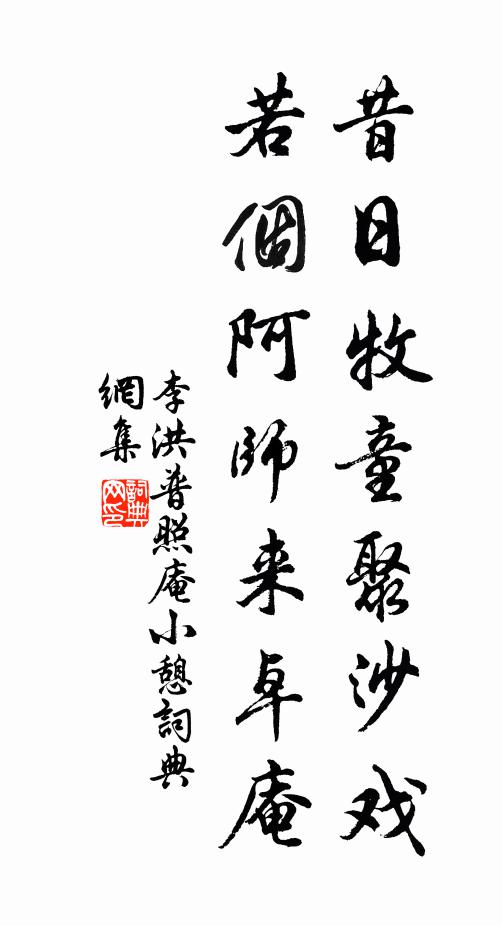 昔日牧童聚沙戏
若個阿師来卓庵
李洪普照庵小憩詞典
網集
詞典
网印